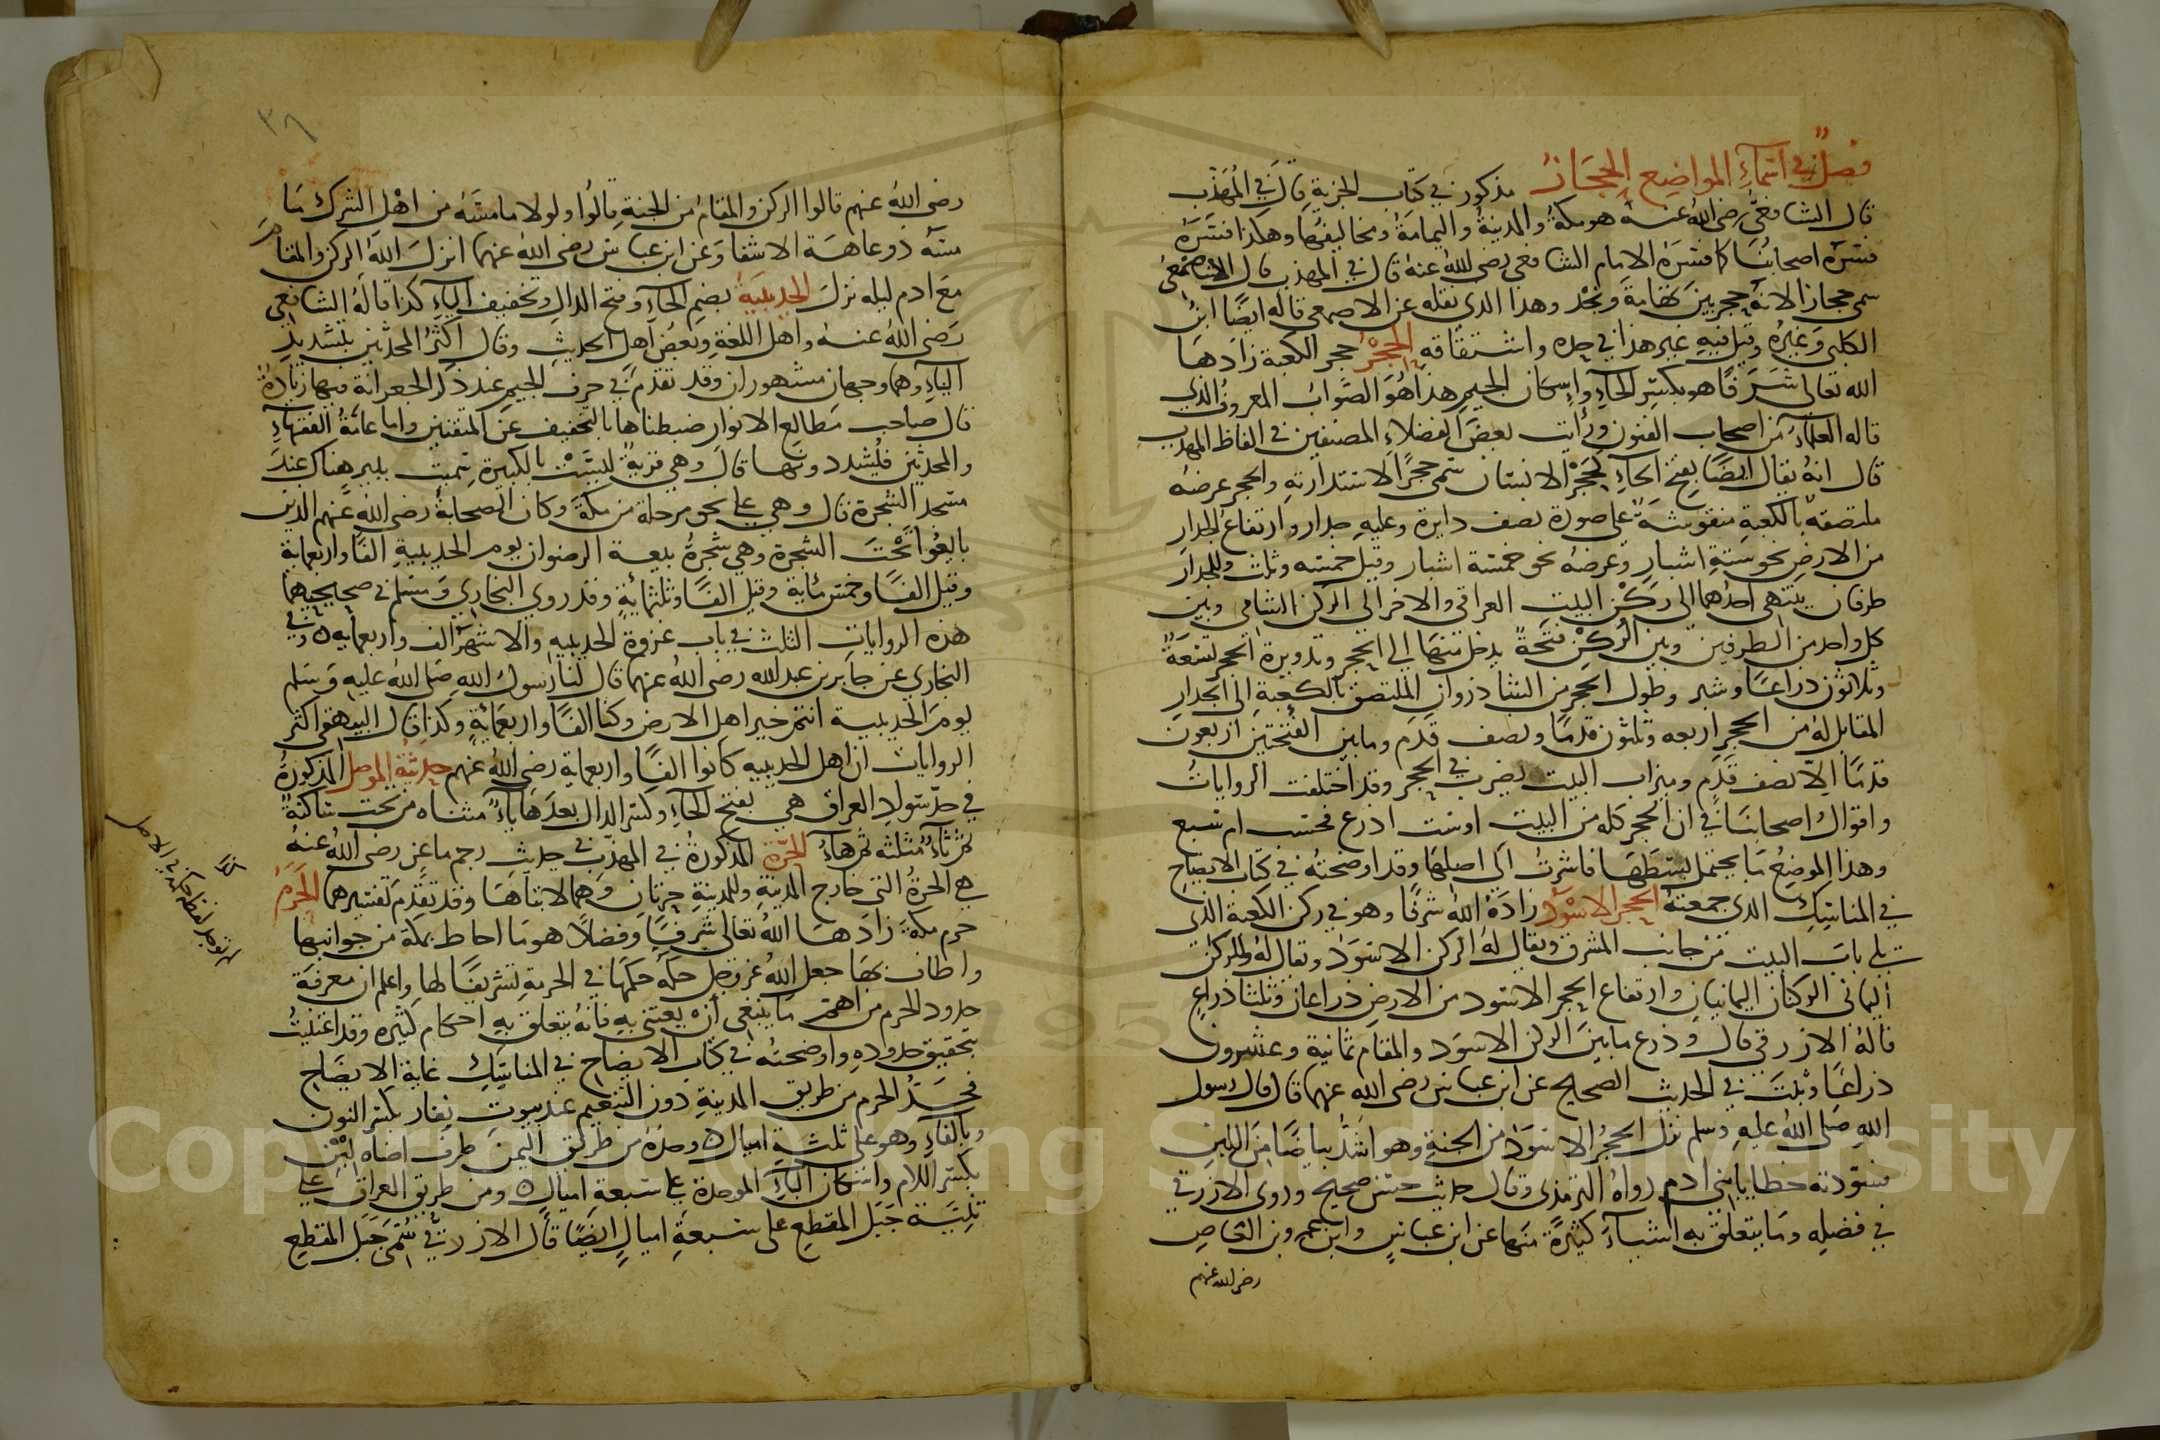 فصل في اسماء المواضع الحجاز مذكور في كتاب الجزية قال في المهذب
قال الشافعي رضي الله عنه هو مكة والمدينة واليمامة ومخاليفها وهكذا فسره
فسره اصحابنا كما فسره الامام الشافعي رضي الله عنه قال في المهذب قال الاصمعي
سمي حجازا لانه حجز بين تهامة ونجد وهذا الذي نقله عن الاصمعي قاله ايضا ابن
الكلبي وغيره وقيل فيه غير هذا في حده واشتقاقه الحجر حجر الكعبة زادها
الله تعالى شرفا هو بكسر الحاء واسكان الجيم هذا هو الصواب المعروف الذي
قاله العلماء من اصحاب الفنون ورأيت بعض الفضلاء المصنفين في الفاظ المهذب
قال انه يقال ايضا بفتح الحاء كحجر الانسان سمي حجرا لاستدارته والحجر عرصة
ملتصقة بالكعبة منقوشة على صورة نصف دايرة وعليه جدار وارتفاع الجدار
من الارض نحو ستة اشبار وعرضه نحو خمسة اشبار وقيل خمسة وثلث وللجدار
طرفان ينتهي احدهما الى ركن البيت العراقي والاخر الى الركن الشامي وبين
كل واحد من الطرفين وبين الركن فتحة يدخل منها الى الحجر وتدويرة الحجر تسعة
وثلاثون ذراعا وشبر وطول الحجر من الشاذروان الملتصق بالكعبة الى الجدار
المقابل له من الحجر اربعه وثلثون قدما ونصف قدم وما بين الفتحتين اربعون
قدما الا نصف قدم وميزاب البيت يضرب في الحجر وقد اختلفت الروايات
واقوال اصحابنا في ان الحجر كله من البيت او ست اذرع فحسب ام سبع
وهذا الموضع مما يحتمل بسطها فاشرت الى اصلها وقد اوضحته في كتاب الايضاح
في المناسك الذي جمعته الحجر الاسود زاده الله شرفا وهو في ركن الكعبة الذي
يلي باب البيت من جانب المشرق ويقال له الركن الاسود ويقال له وللركن
اليماني الركنان اليمانيان وارتفاع الحجر الاسود من الارض ذراعان وثلثا ذراع
قاله الازرقي قال وذرع ما بين الركن الاسود والمقام ثمانية وعشرون
ذراعا وثبت في الحديث الصحيح عن ابن عباس رضي الله عنهما قال قال رسول
الله صلى الله عليه وسلم نزل الحجر الاسود من الجنة وهو اشد بياضا من اللبن
فسودته خطايا بني ادم رواه الترمذي وقال حديث حسن صحيح وروى الازرقي
في فضله وما يتعلق به اشياء كثيرة منها عن ابن عباس وابن عمرو بن العاص
رضي الله عنهم
٣٦
رضي الله عنهم قالوا الركن والمقام من الجنة قالوا ولولا ما مسه من اهل الشرك ما
مسه ذو عاهة الا شفا وعن ابن عباس رضي الله عنهما انزل الله الركن والمقام
مع ادم ليله نزل الحديبية بضم الحاء وفتح الدال وتخفيف الياء كذا قاله الشافعي
رضي الله عنه واهل اللغة وبعض اهل الحديث وقال اكثر المحدثين بتشديد
الياء وهما وجهان مشهوران وقد تقدم في حرف الجيم عند ذكر الجعرانة فيها زيادة
قال صاحب مطالع الانوار ضبطناها بالتخفيف عن المتقنين واما عامة الفقهاء
والمحدثين فيشددونها قال وهي قرية ليست بالكبيرة سميت ببير هناك عند
مسجد الشجرة قال وهي على نحو مرحلة من مكة وكان الصحابة رضي الله عنهم الذين
بايعوا تحت الشجرة وهي شجرة بيعة الرضوان يوم الحديبية الفا واربعماية
وقيل الفا وخمس مائة وقيل الفا وثلثمائة وقد روى البخاري ومسلم في صحيحيهما
هذه الروايات الثلث في باب غزوة الحديبيه والاشهر الف واربعمايه وفي
البخاري عن جابر بن عبد الله رضي الله عنهما قال لنا رسول الله صلى الله عليه وسلم
يوم الحديبية انتم خير اهل الارض وكنا الفا واربعمائة وكذا قال البيهقي اكثر
الروايات ان اهل الحديبيه كانوا الفا واربعماية رضي الله عنهم حديثة الموصل المذكورة
في حد سواد العراق هي بفتح الحاء وكسر الدال بعدها ياء مثناه من تحت ساكنة
ثم ثاء مثلثه ثم هاء الحرة المذكورة في المهذب في حديث رجم ماعز رضي الله عنه
هي الحرة التي خارج المدينة وللمدينة حرتان وهما لابتاها وقد تقدم تفسيرهما الحرم
حرم مكة زادها الله تعالى شرفا وفضلا هو ما احاط بمكة من جوانبها
واطاف بها جعل الله عز وجل حكمه حكمها في الحرمة تشريفا لها واعلم ان معرفة
حدود الحرم من اهم ما ينبغي ان يعتنى به فانه يتعلق به احكام كثيره وقد اعتنيت
بتحقيق حدوده واوضحته في كتاب الايضاح في المناسك غاية الايضاح
فحد الحرم من طريق المدينة دون التنعيم عند بيوت نفار بكسر النون
وبالفاء وهو على ثلثة اميال وحده من طريق اليمن طرف اضاه لبن
بكسر اللام واسكان الباء الموحدة على سبعة اميال ومن طريق العراق على
ثنية جبل المقطع على سبعة اميال ايضا قال الازرقي سمي جبل المقطع